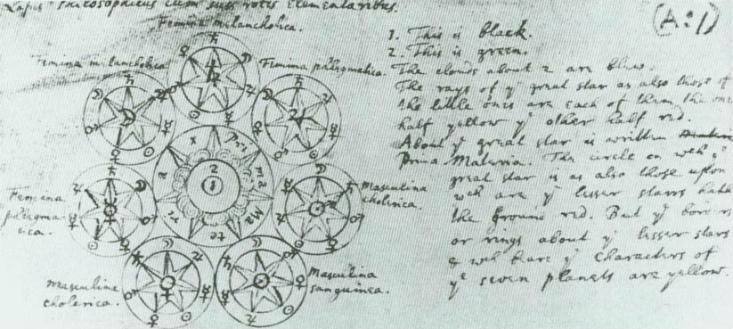 Lapis Philosophicus cum suis rotis Elementaribus.
(A:1)
Femina melancholica.
Femina melancholica
Femina phlegmatica.
Femina
phlegma-
tica.
Masculina
cholerica.
Masculina
cholerica.
Masculina
sanguinea.
Pri ma Ma te ri a x
2
1
1. This is black.
2. This is green.
The clouds about 2 are blew.
The rays of yᵉ great star as also those of
the little ones are each of them the one
half yellow yᵉ other half red.
About yᵉ great star is written
Prima Materia. The circle on wᶜʰ yᵉ
great star is as also those upon
wᶜʰ are yᵉ lesser starrs hath
the ground red. But yᵉ borders
or rings about yᵉ lesser stars
& wᶜʰ bare yᵉ characters of
yᵉ seven planets are yellow.